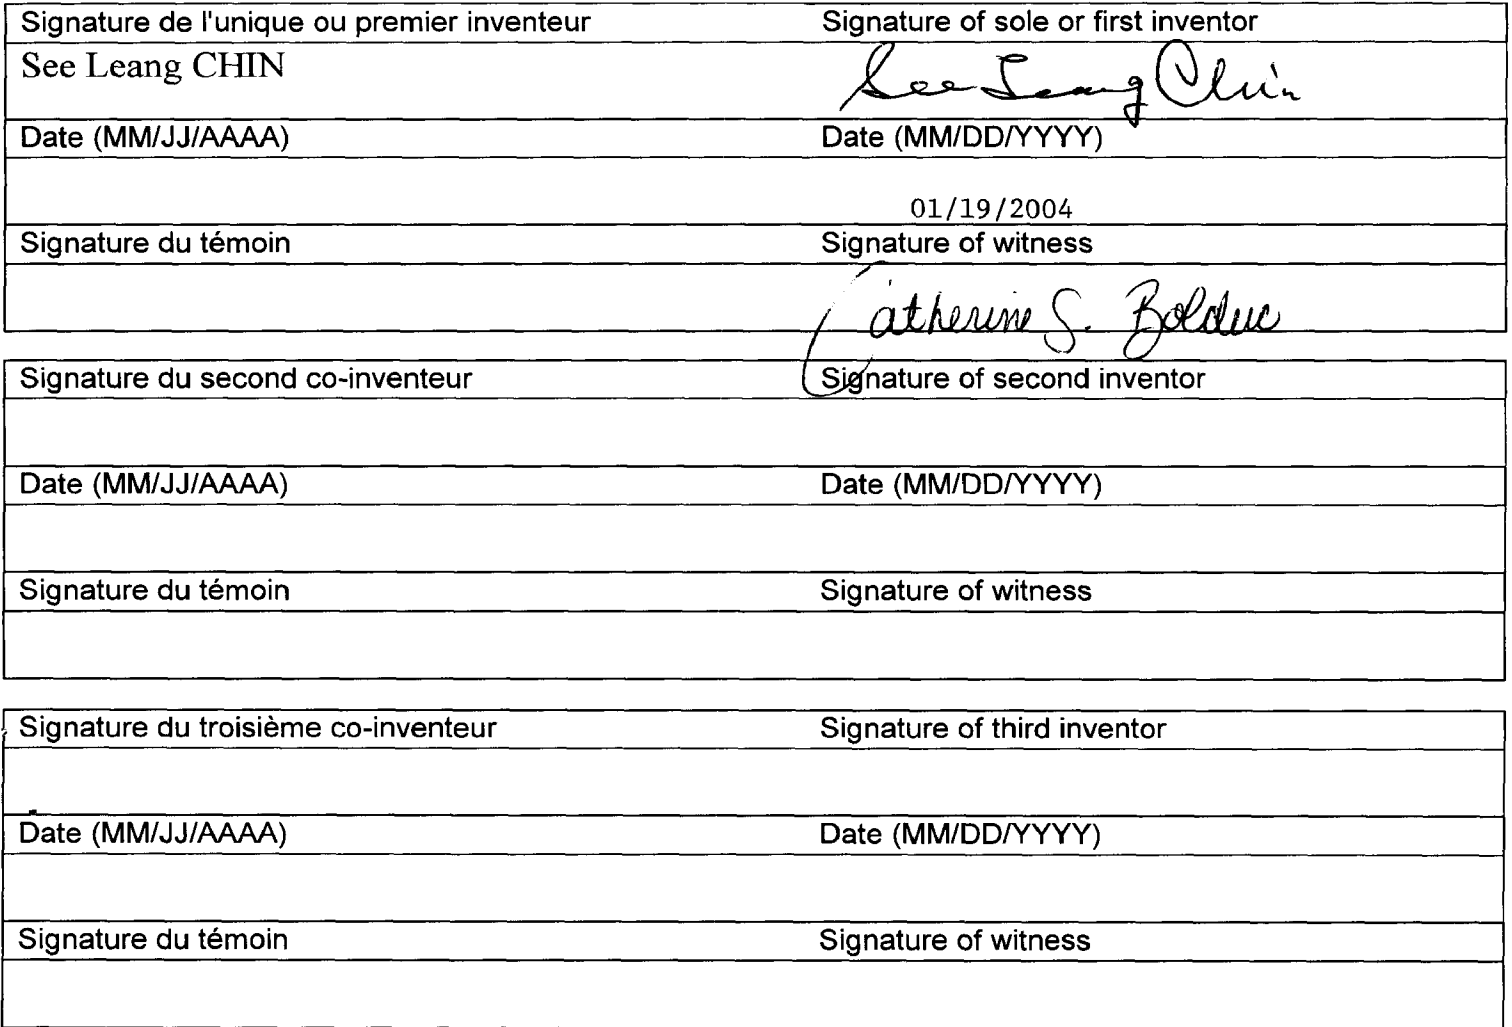 Signature de l'unique ou premier inventeur Signature of sole or first inventor
See Leang CHIN See Leang Chin
Date (MM/JJ/AAAA) Date (MM/DD/YYYY)
01/19/2004
Signature du témoin Signature of witness
Catherine S. Bolduc
Signature du second co-inventeur Signature of second inventor
Date (MM/JJ/AAAA) Date (MM/DD/YYYY)
Signature du témoin Signature of witness
Signature du troisième co-inventeur Signature of third inventor
Date (MM/JJ/AAAA) Date (MM/DD/YYYY)
Signature du témoin Signature of witness